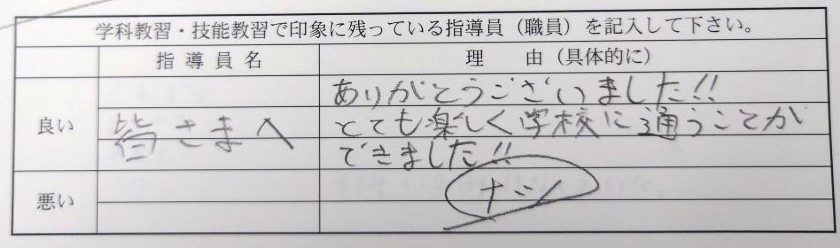 学科教習・技能教習で印象に残っている指導員（職員）を記入して下さい。
指導員名 理由（具体的に）
良い
皆さまへ
ありがとうございました!!
とても楽しく学校に通うことが
できました!!
悪い
ナシ